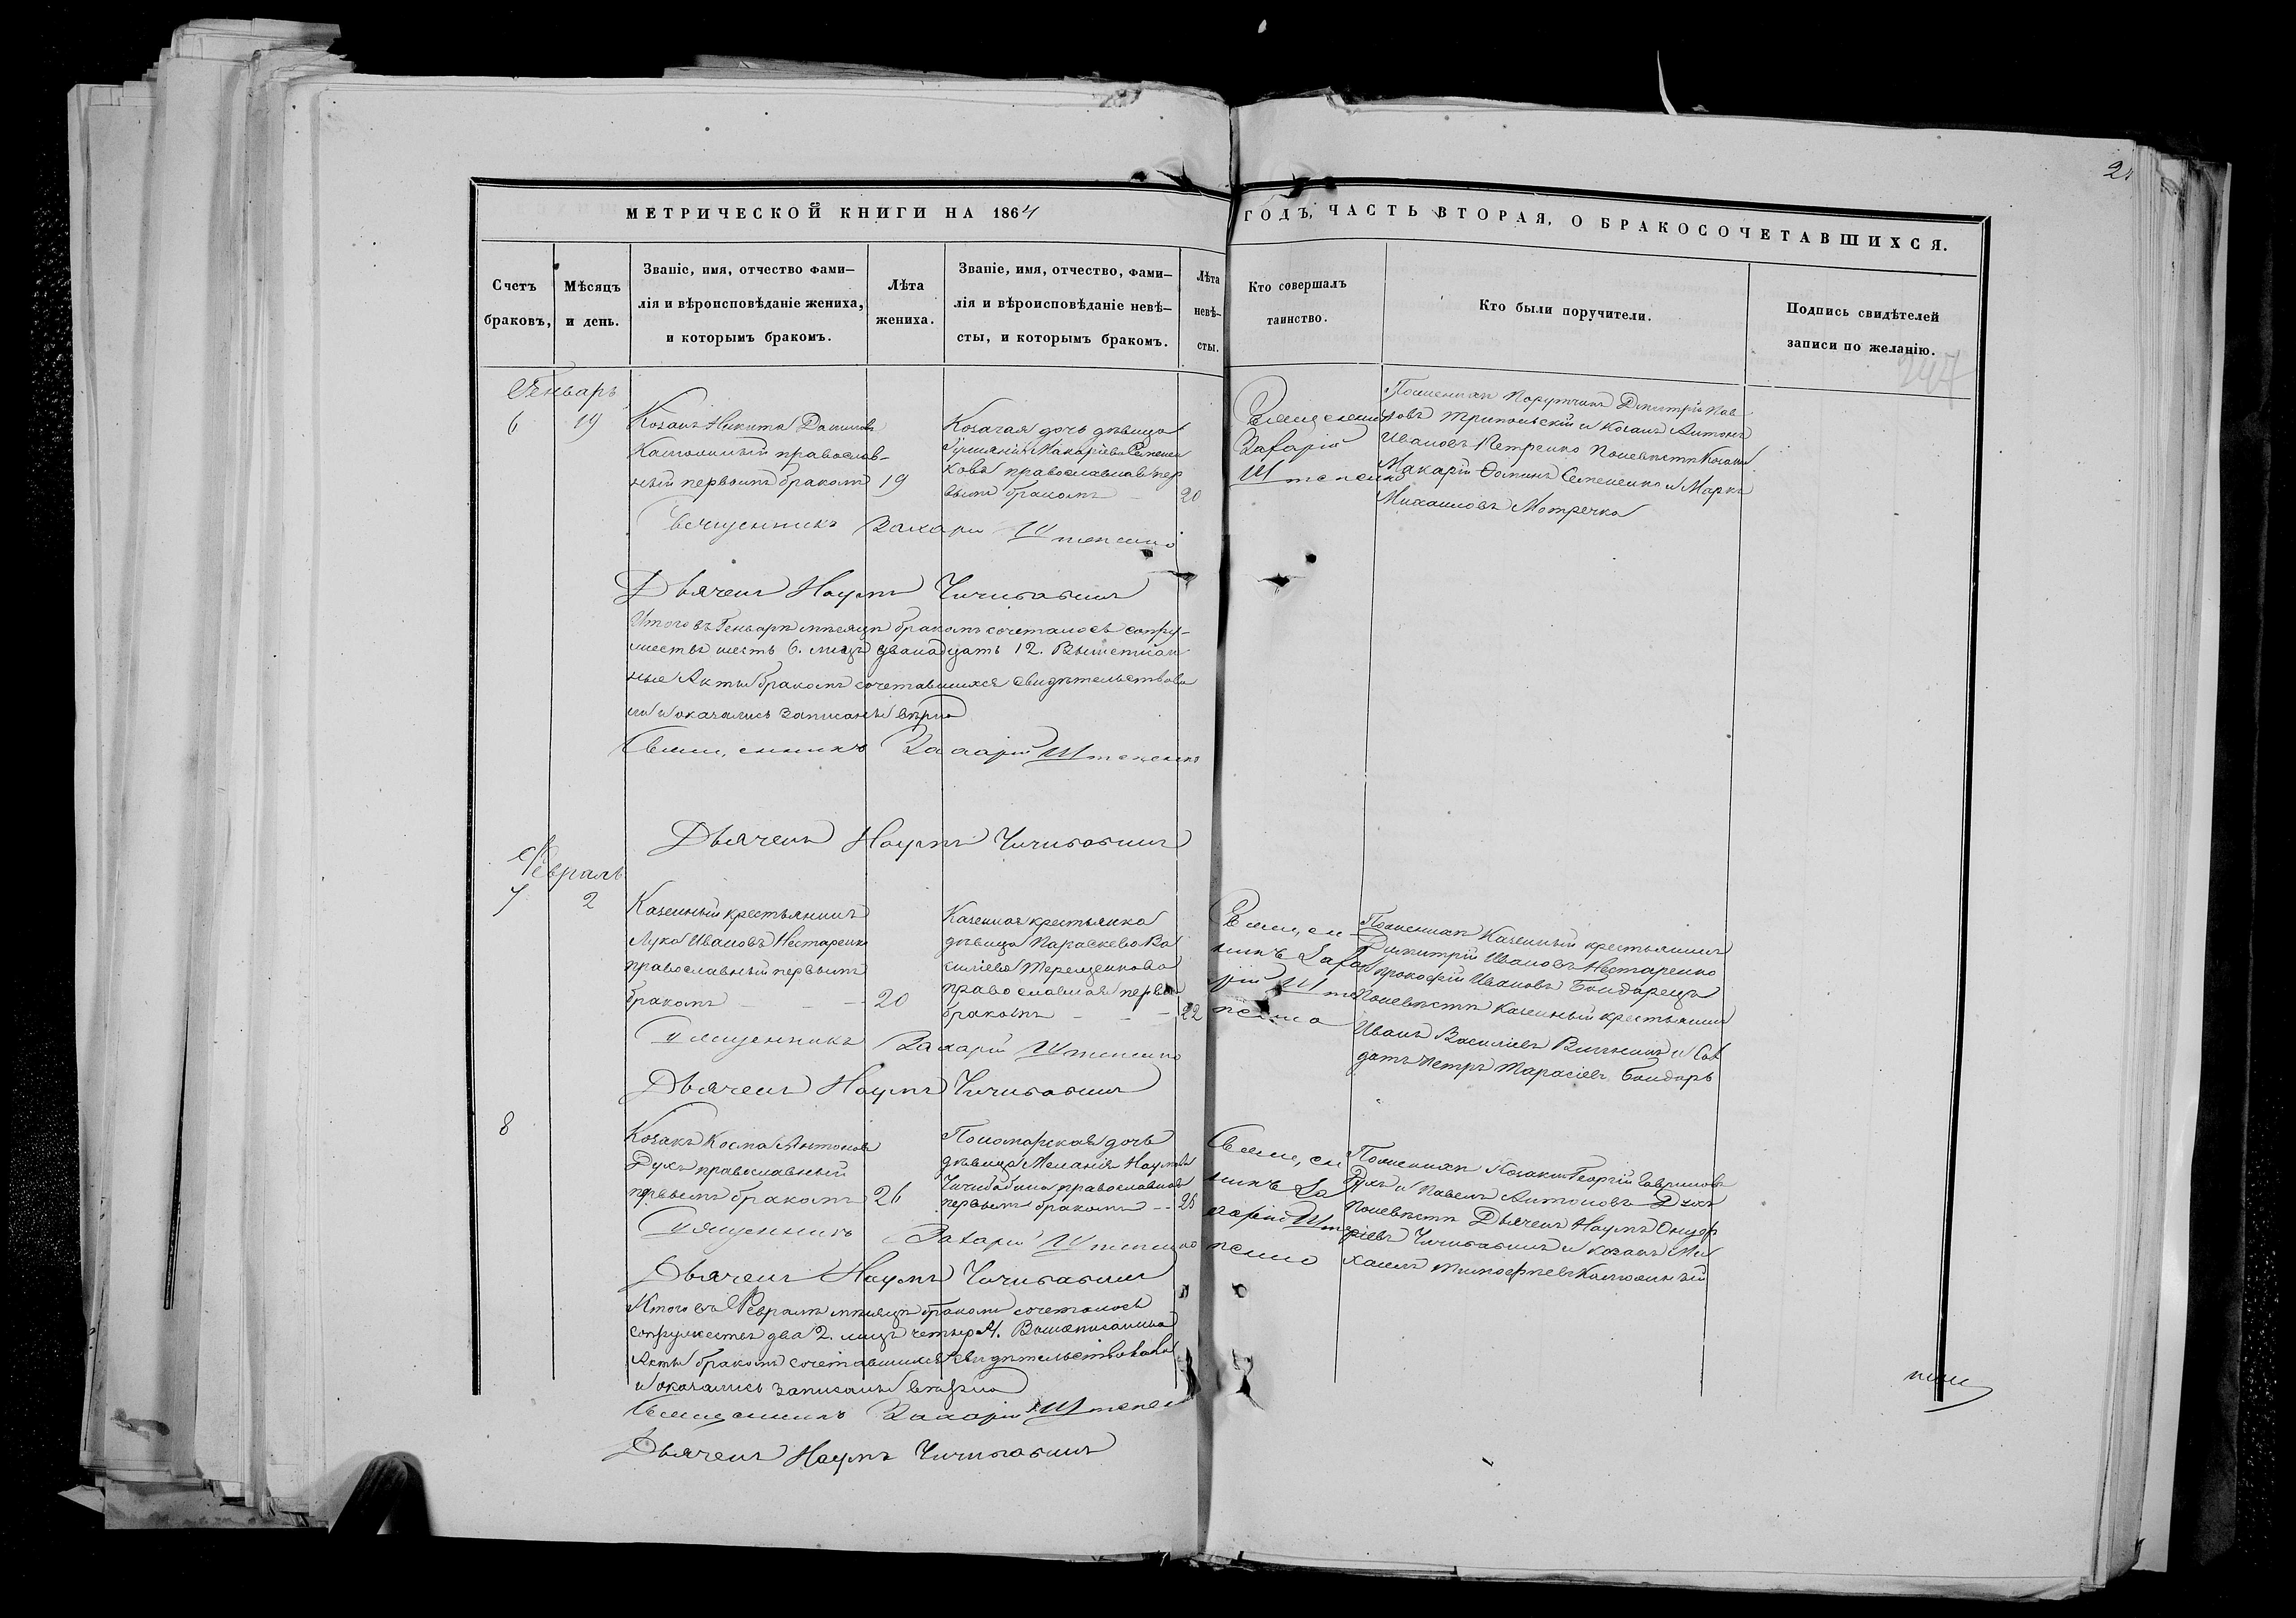 2
МЕТРИЧЕСКОЙ КНИГИ НА 1864
ГОДЪ, ЧАСТЬ ВТОРАЯ, О БРАКОСОЧЕТАВШИХСЯ.
Счетъ
браковъ,
Мѣсяцъ
и день.
Званіе, имя, отчество фами–
лія и вѣроисповѣданіе жениха,
и которымъ бракомъ.
Лѣта
жениха.
Званіе, имя, отчество, фами–
лія и вѣроисповѣданіе невѣ–
сты, и которымъ бракомъ.
Лѣта
невѣ–
сты.
Кто совершалъ
таинство.
Кто были поручители.
Подпись свидѣтелей
записи по желанію.
247
Генварь
6
19
Козакъ Никита Даниловъ
православ–
ный первымъ бракомъ
19
Козачая дочь дѣвица
Макаріева Семенен
кова православная пер
вымъ бракомъ
20
Священникъ
Захарій
Штепенко
По женихѣ Порутчикъ Дмитрій Пав
ловъ Трипольскій и Козакъ Антонъ
Ивановъ Петренко По невѣстѣ Козаки
Макарій Ѳоминъ Семененко и Маркъ
Михаиловъ Мотречко
Священникъ Захарій Штепенко
Дьячекъ Наумъ Чичибабинъ
Итого въ Генварѣ мѣсяцѣ бракомъ сочеталось супру–
жествъ шесть 6. лицъ дванадцать 12. Вышеписан
ные Акты бракомъ сочетавшихся свидѣтельствова
ли и оказались записаны вѣрно
Священникъ Захарій Штепенко
Дьячекъ Наумъ Чичибабинъ
Февраль
7
2
Казенный крестьянинъ
Лука Ивановъ Нестаренко
православный первымъ
бракомъ
20
Казенная крестьянка
дѣвица Параскева Ва
силіева Терещенкова
православная первы
бракомъ
22
Священ
никъ Заха
рій Ште
пенко
По женихѣ Казенный крестьянинъ
Димитрій Ивановъ Нестаренко
Прокофій Ивановъ Бондарец
По невѣстѣ Казенный крестьянинъ
Иванъ Василіевъ и Сол
датъ Петръ Тарасіевъ Бондарь
Священникъ Захарій Штепенко
Дьячекъ Наумъ Чичибабинъ
8
Козакъ Косма Антоновъ
Духъ православный
первымъ бракомъ
26
Пономарская дочь
дѣвица Меланія Наумова
Чичибабина православная
первымъ бракомъ
Священ
никъ За
харій Ште
пенко
По женихѣ Козаки Георгій Гавриловъ
Духъ и Павелъ Антоновъ Духъ
По невѣстѣ Дьячекъ Наумъ Онуф
ріевъ Чичибабинъ и козакъ Ми
хаилъ Тимофѣевъ
Священникъ Захарій Штепенко
Дьячекъ Наумъ Чичибабинъ
Итого въ Февралѣ мѣсяцѣ бракомъ сочеталось
супружествъ два 2. лицъ четыре 4. Вышеписанные
Акты бракомъ сочетавшихся свидѣтельствовали
и оказались записаны вѣрно
Священникъ Захарій Штепен
Дьячекъ Наумъ Чичибабинъ